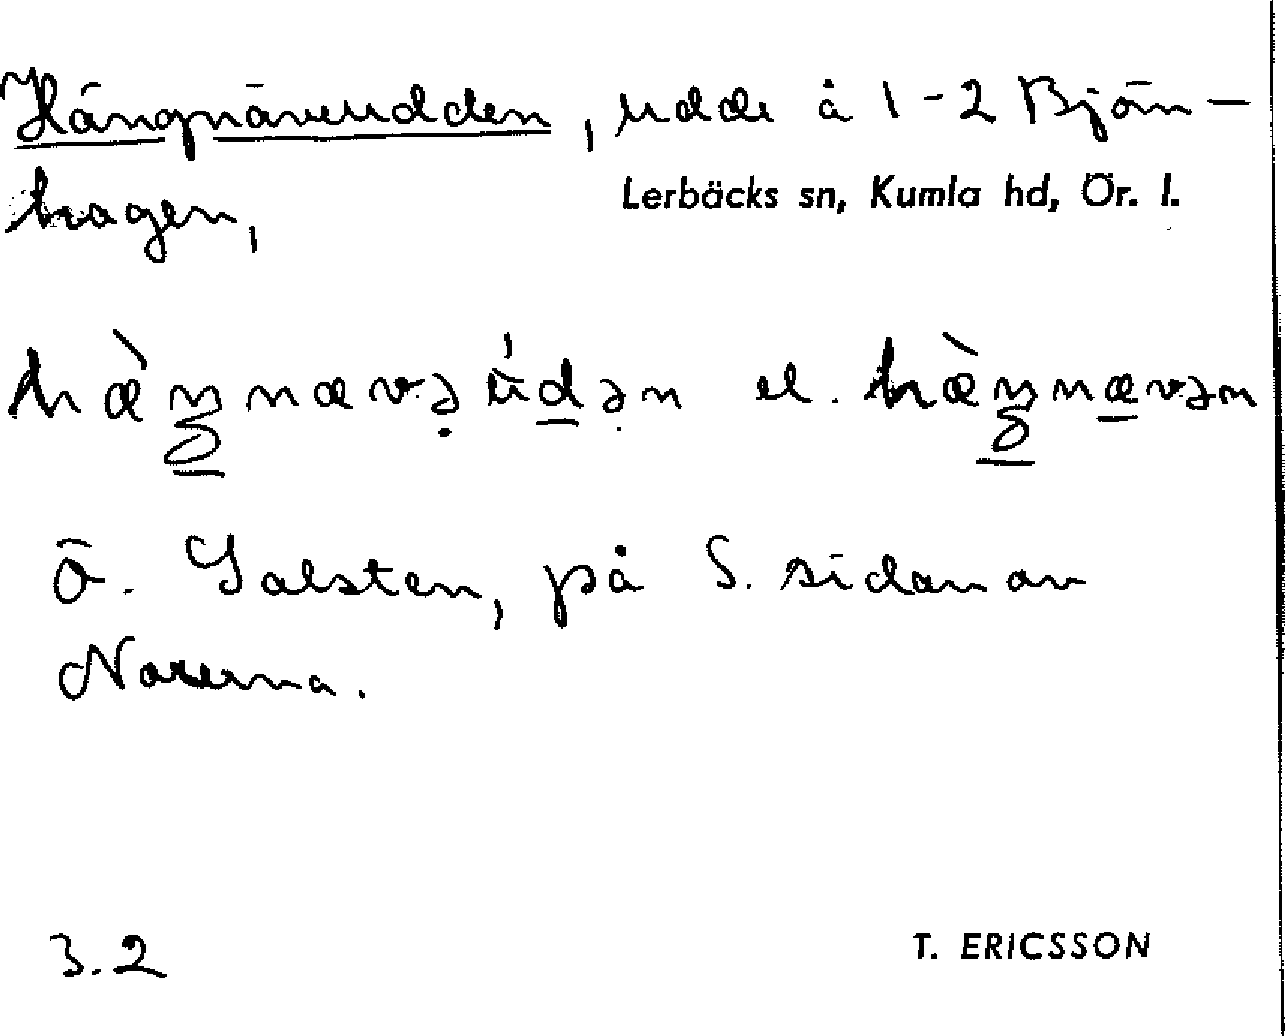 Hängnäveudden, udde å 1-2 Björn-
hagen,
Lerbäcks sn, Kumla hd, Ör. l.
hæ̀ŋnævə u̇́dən el. hæ̀ŋnævən
Ö. Salsten, på S. sidan av
Norerna.
3.2
T. ERICSSON